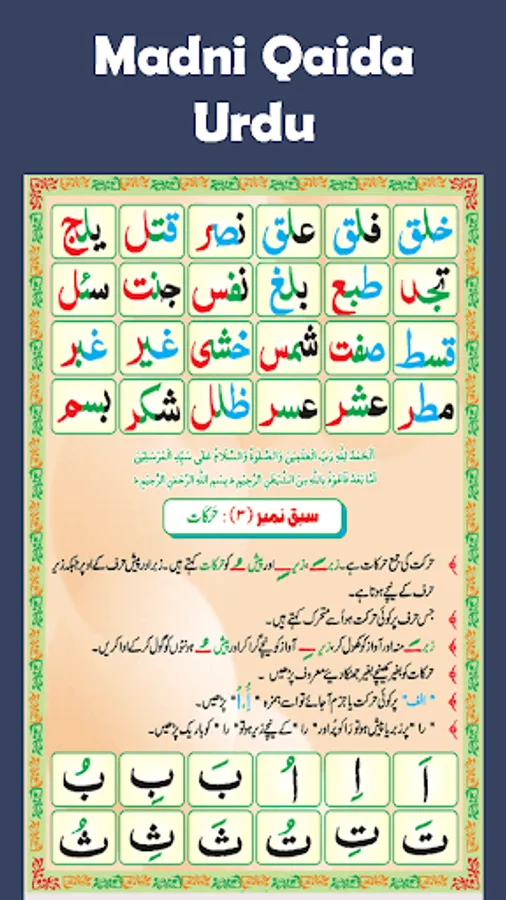 Madni Qaida
Urdu
خلق فلق علق نصر قتل یلج
تجد طبع بلغ نفس جنت سئل
قسط صفت شمس خشی غیر غبر
مطر عشر عسر ظلل شکر بسم
اَلْحَمْدُ لِلّٰهِ رَبِّ الْعٰلَمِيْنَ وَالصَّلٰوةُ وَالسَّلَامُ عَلٰى سَيِّدِ الْمُرْسَلِيْنَ
اَمَّا بَعْدُ فَاَعُوْذُ بِاللّٰهِ مِنَ الشَّيْطٰنِ الرَّجِيْمِ ؕ بِسْمِ اللّٰهِ الرَّحْمٰنِ الرَّحِيْمِ ؕ
سبق نمبر (۳) : حَرَکات
حرکت کی جمع حرکات ہے۔ زبر ـَ، زیر ـِ اور پیش ـُ کو حرکات کہتے ہیں۔ زبر اور پیش حرف کے اوپر جبکہ زیر
حرف کے نیچے ہوتا ہے۔
جس حرف پر کوئی حرکت ہو اُسے متحرک کہتے ہیں۔
زبر ـَ منہ اور آواز کو کھول کر، زیر ـِ آواز کو نیچے گرا کر اور پیش ـُ ہونٹوں کو گول کر کے ادا کریں۔
حرکات کو بغیر کھینچے بغیر جھٹکا دیے معروف پڑھیں۔
"الف" پر کوئی حرکت یا جزم آجائے تو اسے ہمزہ "أ" پڑھیں۔
"را" پر زبر یا پیش ہو تو را کو پُر اور "را" کے نیچے زیر ہو تو "را" کو باریک پڑھیں۔
اَ اِ اُ بَ بِ بُ
تَ تِ تُ ثَ ثِ ثُ